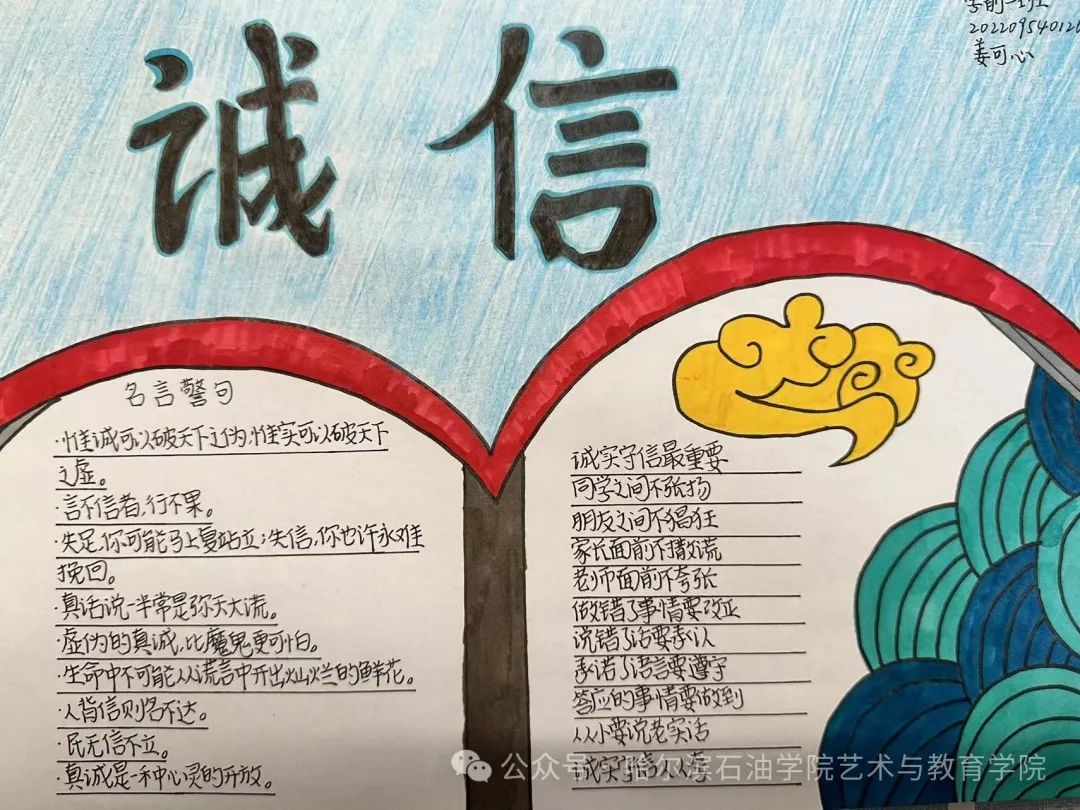 诚信
学前一班
202209540120
姜可心
名言警句
·惟诚可以破天下之伪,惟实可以破天下
之虚。
·言不信者,行不果。
·失足,你可能马上复站立;失信,你也许永难
挽回。
·真话说一半常是弥天大谎。
·虚伪的真诚,比魔鬼更可怕。
·生命中不可能从谎言中开出灿烂的鲜花。
·人背信则名不达。
·民无信不立。
·真诚是一种心灵的开放。
诚实守信最重要
同学之间不张扬
朋友之间不猖狂
家长面前不撒谎
老师面前不夸张
做错了事情要改正
说错了话要承认
承诺了语言要遵守
答应的事情要做到
从小要说老实话
诚实
公众号 哈尔滨石油学院艺术与教育学院